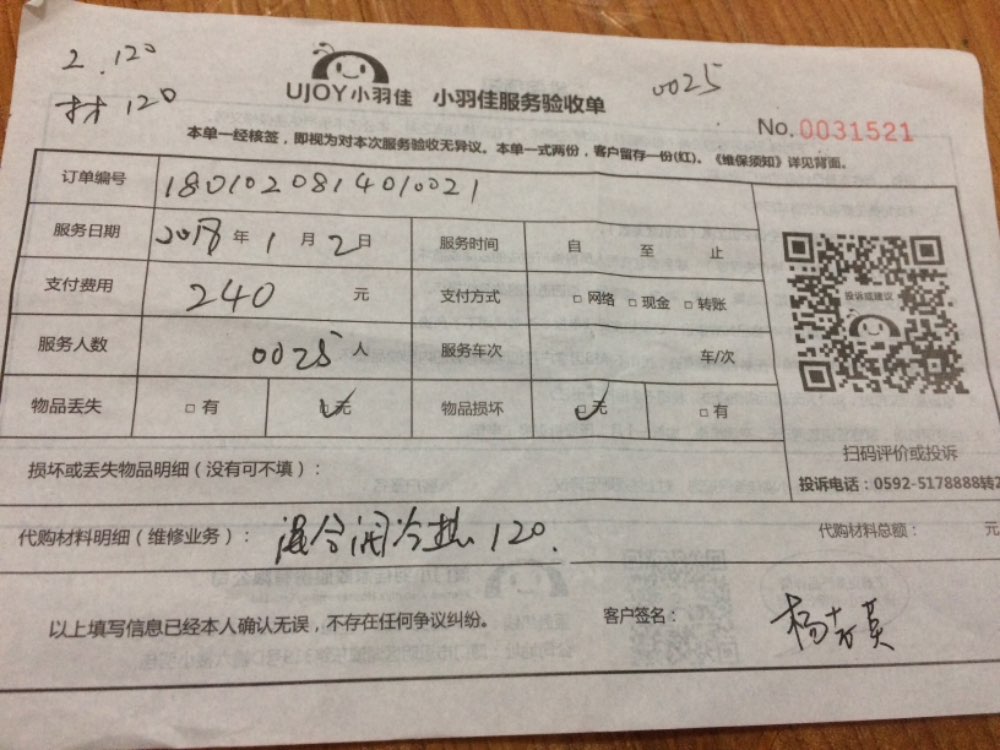 2.120
材120
UJOY小羽佳 小羽佳服务验收单
0025
No.0031521
本单一经核签，即视为对本次服务验收无异议。本单一式两份，客户留存一份(红)。《维保须知》详见背面。
订单编号 1801020814010021
服务日期 2018年1月2日 服务时间 自 至 止
支付费用 240 元 支付方式 □网络 □现金 □转账
投诉或建议
服务人数 0025人 服务车次 车/次
物品丢失 □有 ☑无 物品损坏 ☑无 □有
扫码评价或投诉
损坏或丢失物品明细（没有可不填）：
投诉电话：0592-5178888转2
代购材料明细（维修业务）： 混合阀冷热120. 代购材料总额： 元
以上填写信息已经本人确认无误，不存在任何争议纠纷。 客户签名：